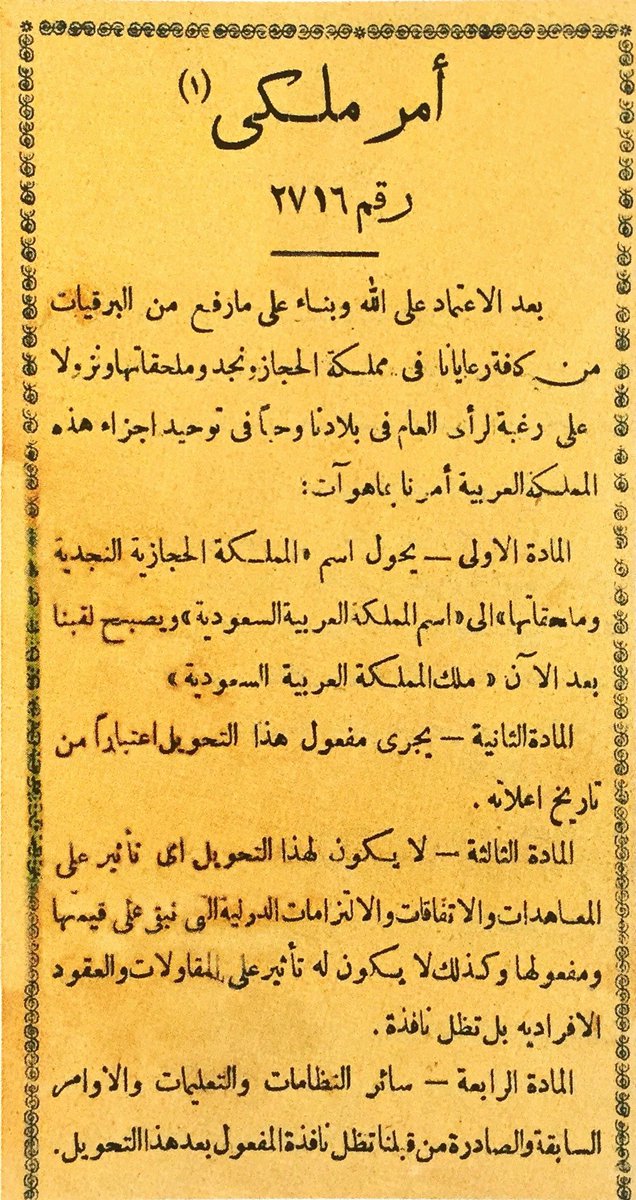 أمر ملكى (١)
رقم ٢٧١٦
بعد الاعتماد على الله وبناء على مارفع من البرقيات
من كافة رعايانا فى مملكة الحجاز ونجد وملحقاتها ونزولا
على رغبة لرأى العام فى بلادنا وحباً فى توحيد اجزاء هذه
المملكة العربية أمرنا بماهو آت :
المادة الاولى — يحول اسم «المملكة الحجازية النجدية
وملحقاتها» الى «اسم المملكة العربية السعودية» ويصبح لقبنا
بعد الآن « ملك المملكة العربية السعودية »
المادة الثانية — يجرى مفعول هذا التحويل اعتباراً من
تاريخ اعلانه .
المادة الثالثة — لا يكون لهذا التحويل اى تأثير على
المعاهدات والاتفاقات والالتزامات الدولية التى تبقى على قيمتها
ومفعولها وكذلك لا يكون له تأثير على المقاولات والعقود
الافراديه بل تظل نافذة .
المادة الرابعة — سائر النظامات والتعليمات والاوامر
السابقة والصادرة من قبلنا تظل نافذة المفعول بعد هذا التحويل.